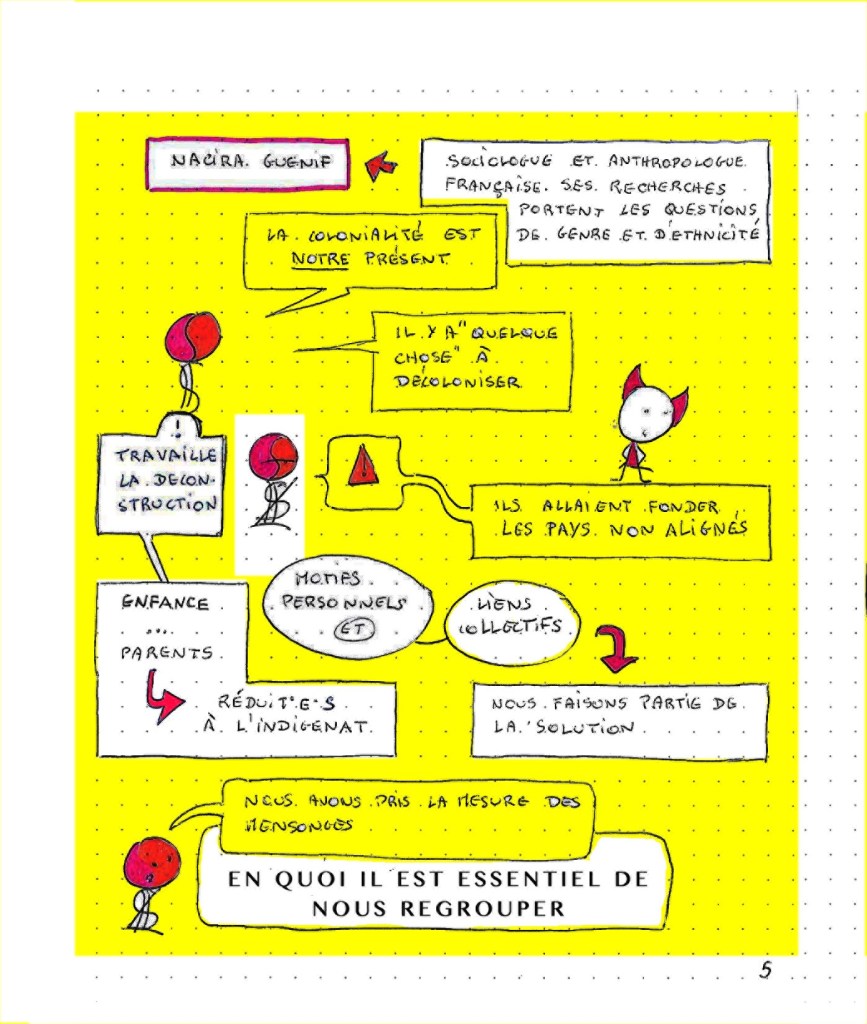 NACIRA GUENIF
SOCIOLOGUE ET ANTHROPOLOGUE
FRANÇAISE. SES RECHERCHES
PORTENT LES QUESTIONS
DE GENRE ET D'ETHNICITÉ
LA COLONIALITÉ EST
NOTRE PRÉSENT
IL Y A "QUELQUE
CHOSE" À
DÉCOLONISER
!
TRAVAILLE
LA DECON-
STRUCTION
!
ILS ALLAIENT FONDER
LES PAYS NON ALIGNÉS
ENFANCE
...
PARENTS
RÉDUIT·E·S
À L'INDIGENAT
MOTIFS
PERSONNELS
ET
LIENS
COLLECTIFS
NOUS FAISONS PARTIE DE
LA SOLUTION
NOUS AVONS PRIS LA MESURE DES
MENSONGES
EN QUOI IL EST ESSENTIEL DE
NOUS REGROUPER
5